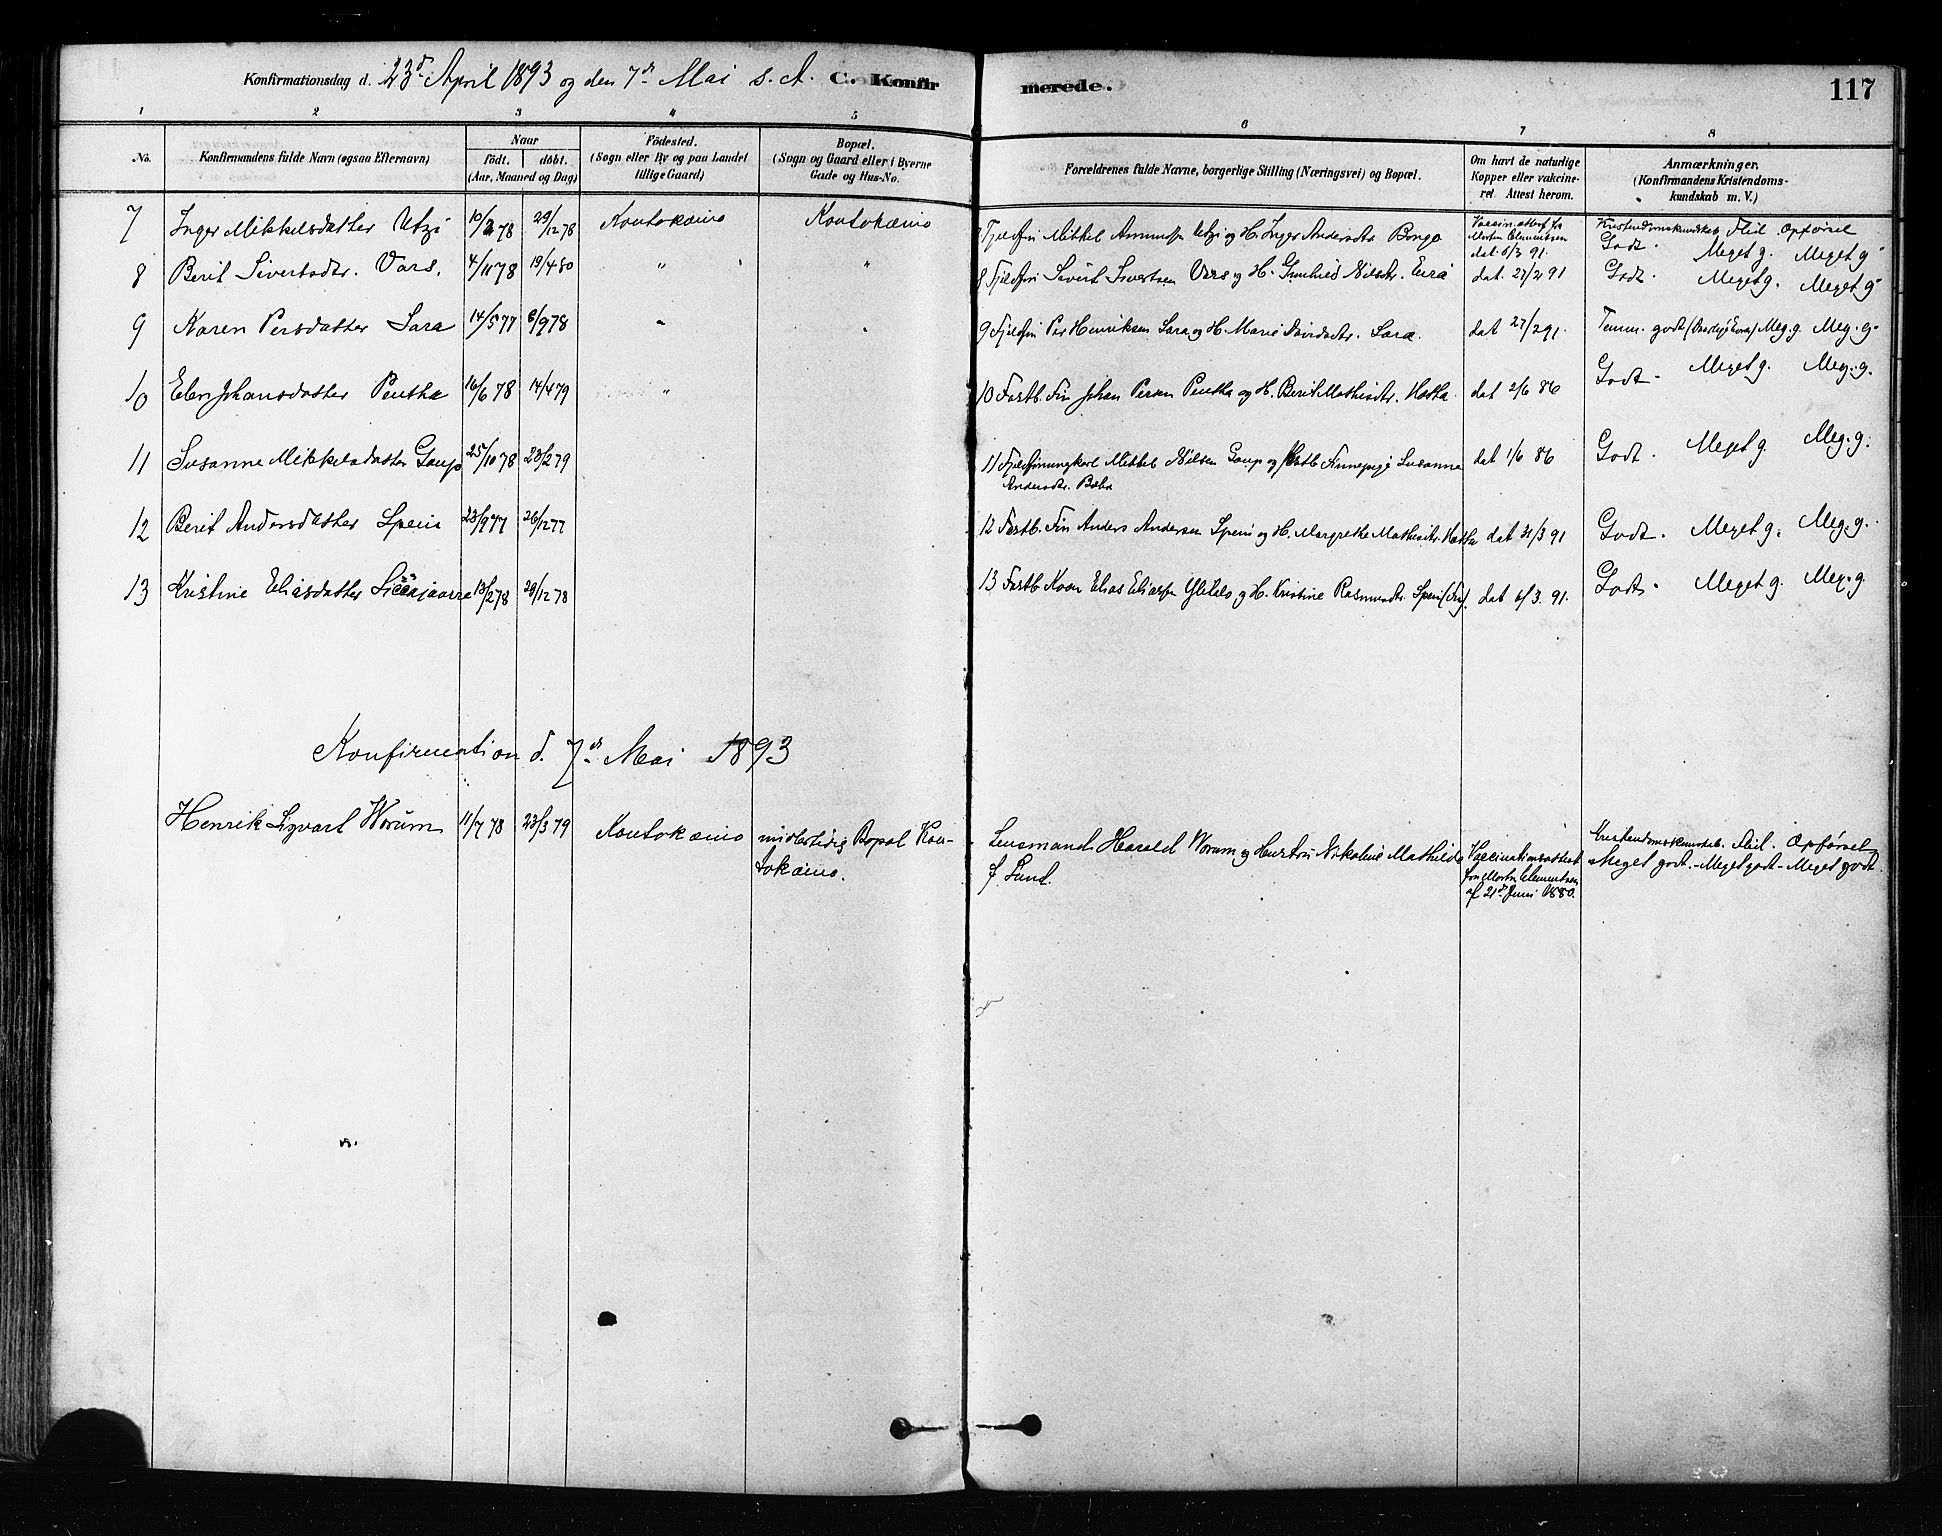 Konfirmationsdag d. 23d April 1893 og den 7de Mai s. A. C. Konfirmerede. 117
1 2 3 4 5 6 7 8
No.
Konfirmandens fulde Navn (ogsaa Efternavn)
Naar
födt. döbt.
(Aar, Maaned og Dag)
Födested.
(Sogn eller By og paa Landet
tillige Gaard)
Bopæl.
(Sogn og Gaard eller i Byerne
Gade og Hus-No.
Forældrenes fulde Navne, borgerlige Stilling (Næringsvei) og Bopæl.
Om havt de naturlige
Kopper eller vakcine-
ret. Attest herom.
Anmærkninger.
(Konfirmandens Kristendoms-
kundskab m. V.)
7 Inger Mikkelsdatter Utzi 10/2 78 29/12 78 Koutokæino Koutokæino 7 Fjeldfin Mikkel Ammundsen Utzi og H. Inger Andersdtr. Bongo Vaccin.attest fra Morten Clemmetsen dat. 6/3 91. Kristendomskundskab Godt. Flid Meget g. Opførsel Meget g.
8 Berit Sivertsdtr. Vars. 4/11 78 19/4 80 " " 8 Fjeldfin Sivert Sivertsen Vars og H. Gunhild Nilsdtr. Eira dat. 27/2 91 Godt. Meget g. Meget g.
9 Karen Persdatter Sara 14/5 77 8/9 78 " " 9 Fjeldfin Per Henriksen Sara og H. Marie Davidsdtr. Sara. dat 27/2 91. Temm. godt Meg. g. Meg. g.
10 Elen Johansdatter Pentha 16/6 78 14/4 79 " 10 Fastb. Fin Johan Persen Pentha og H. Berit Mathisdtr. Hætta. dat 2/6 86 Godt. Meget g. Meg. g.
11 Susanne Mikkelsdatter Gaup 25/10 78 23/2 79 11 Fjeldfinungkarl Mikkel Nilsen Gaup og fastb. Finnepige Susanna
Andersdtr. Bæhr dat 1/6 86 Godt. Meget g. Meg. g.
12 Berit Andersdatter Spein 23/9 77 26/12 77 12 Fastb. Fin Anders Andersen Spein og H. Margrethe Mathisdtr. Hætta dat 31/3 91 Godt. Meget g. Meg. g.
13 Kristine Eliasdatter 13/2 78 29/12 78 13 Fastb. Kvæn Elias Eliassen Ylitalo og H. Kristine Rasmusdtr. Spein (Fin). dat 6/3. 91. Godt. Meget g. Meg. g.
Konfirmation d. 7de Mai 1893
Henrik Sigvart Worum 11/7 78 23/3 79 Koutokæino midlertidig Bopæl Kou-
tokæino.
Lensmand Harald Worum og Hustru Nikoline Mathilde
f. Lund.
Vaccinationsattest
fra Morten Clemmetsen
af 21de Juni 1880.
Kristendomskundskab. Flid. Opførsel
Meget godt. - Meget godt - Meget godt.